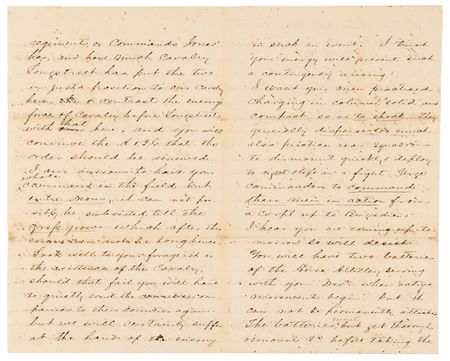 regiments or Commands Jones
has, and how much Cavalry
Longstreet has put the two
in just a fraction to our Cavalry
here & contrast the enemy
force of Cavalry before Longstreet
with that here, and you will
convince the A & I G that the
order should be renewed.
I am anxious to have your
whole
command in the field but
in the snow, it can not pos
sibly be subsisted till the
grass grows which after, the
long hence.
Look well to your forage, it is
the existence of the Cavalry
should that fail you will have
to quietly send the com
panies to their counties again
but we will certainly suffer
at the hands of the enemy
in such an event. I trust
your energy will prevent such
a contingency arising.
I want your men practised
charging in column, solid and
compact, so as to shock the
generally dispersed
also practice near squadron
to dismount quickly & deploy
to right & left in a fight. Urge
Commanders to command
their men in action from
a Corpl up to Brigadier.
I hear you are coming up to
morrow so will desist.
You will have two batteries
of the Horse Artillery serving
with you when active
movements begin but it
can not be permanently attached
The batteries must get through
remounts &c before taking the